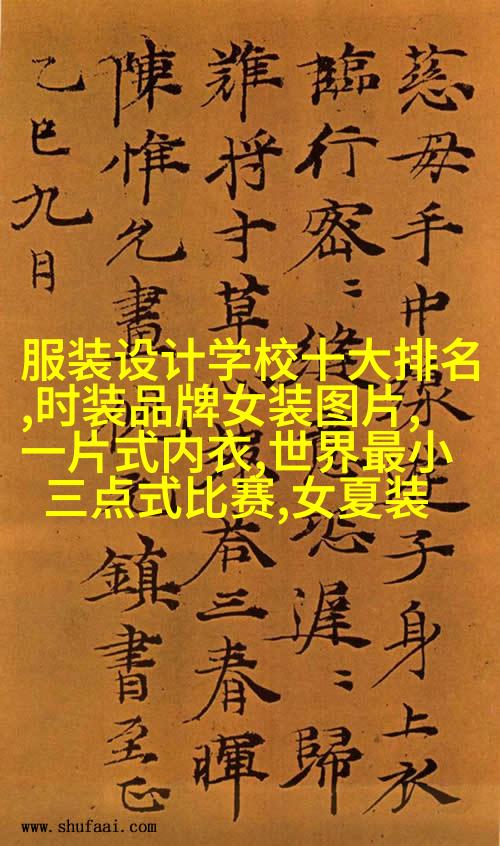 慈母手中線遊子身上衣
臨行密〻縫意恐遲〻歸
難将寸草答三春暉
陳惟允書鎮書至正
乙巳九月
服装设计学校十大排名
,时装品牌女装图片,
一片式内衣,世界最小
三点式比赛,女夏装
www.shufaai.com